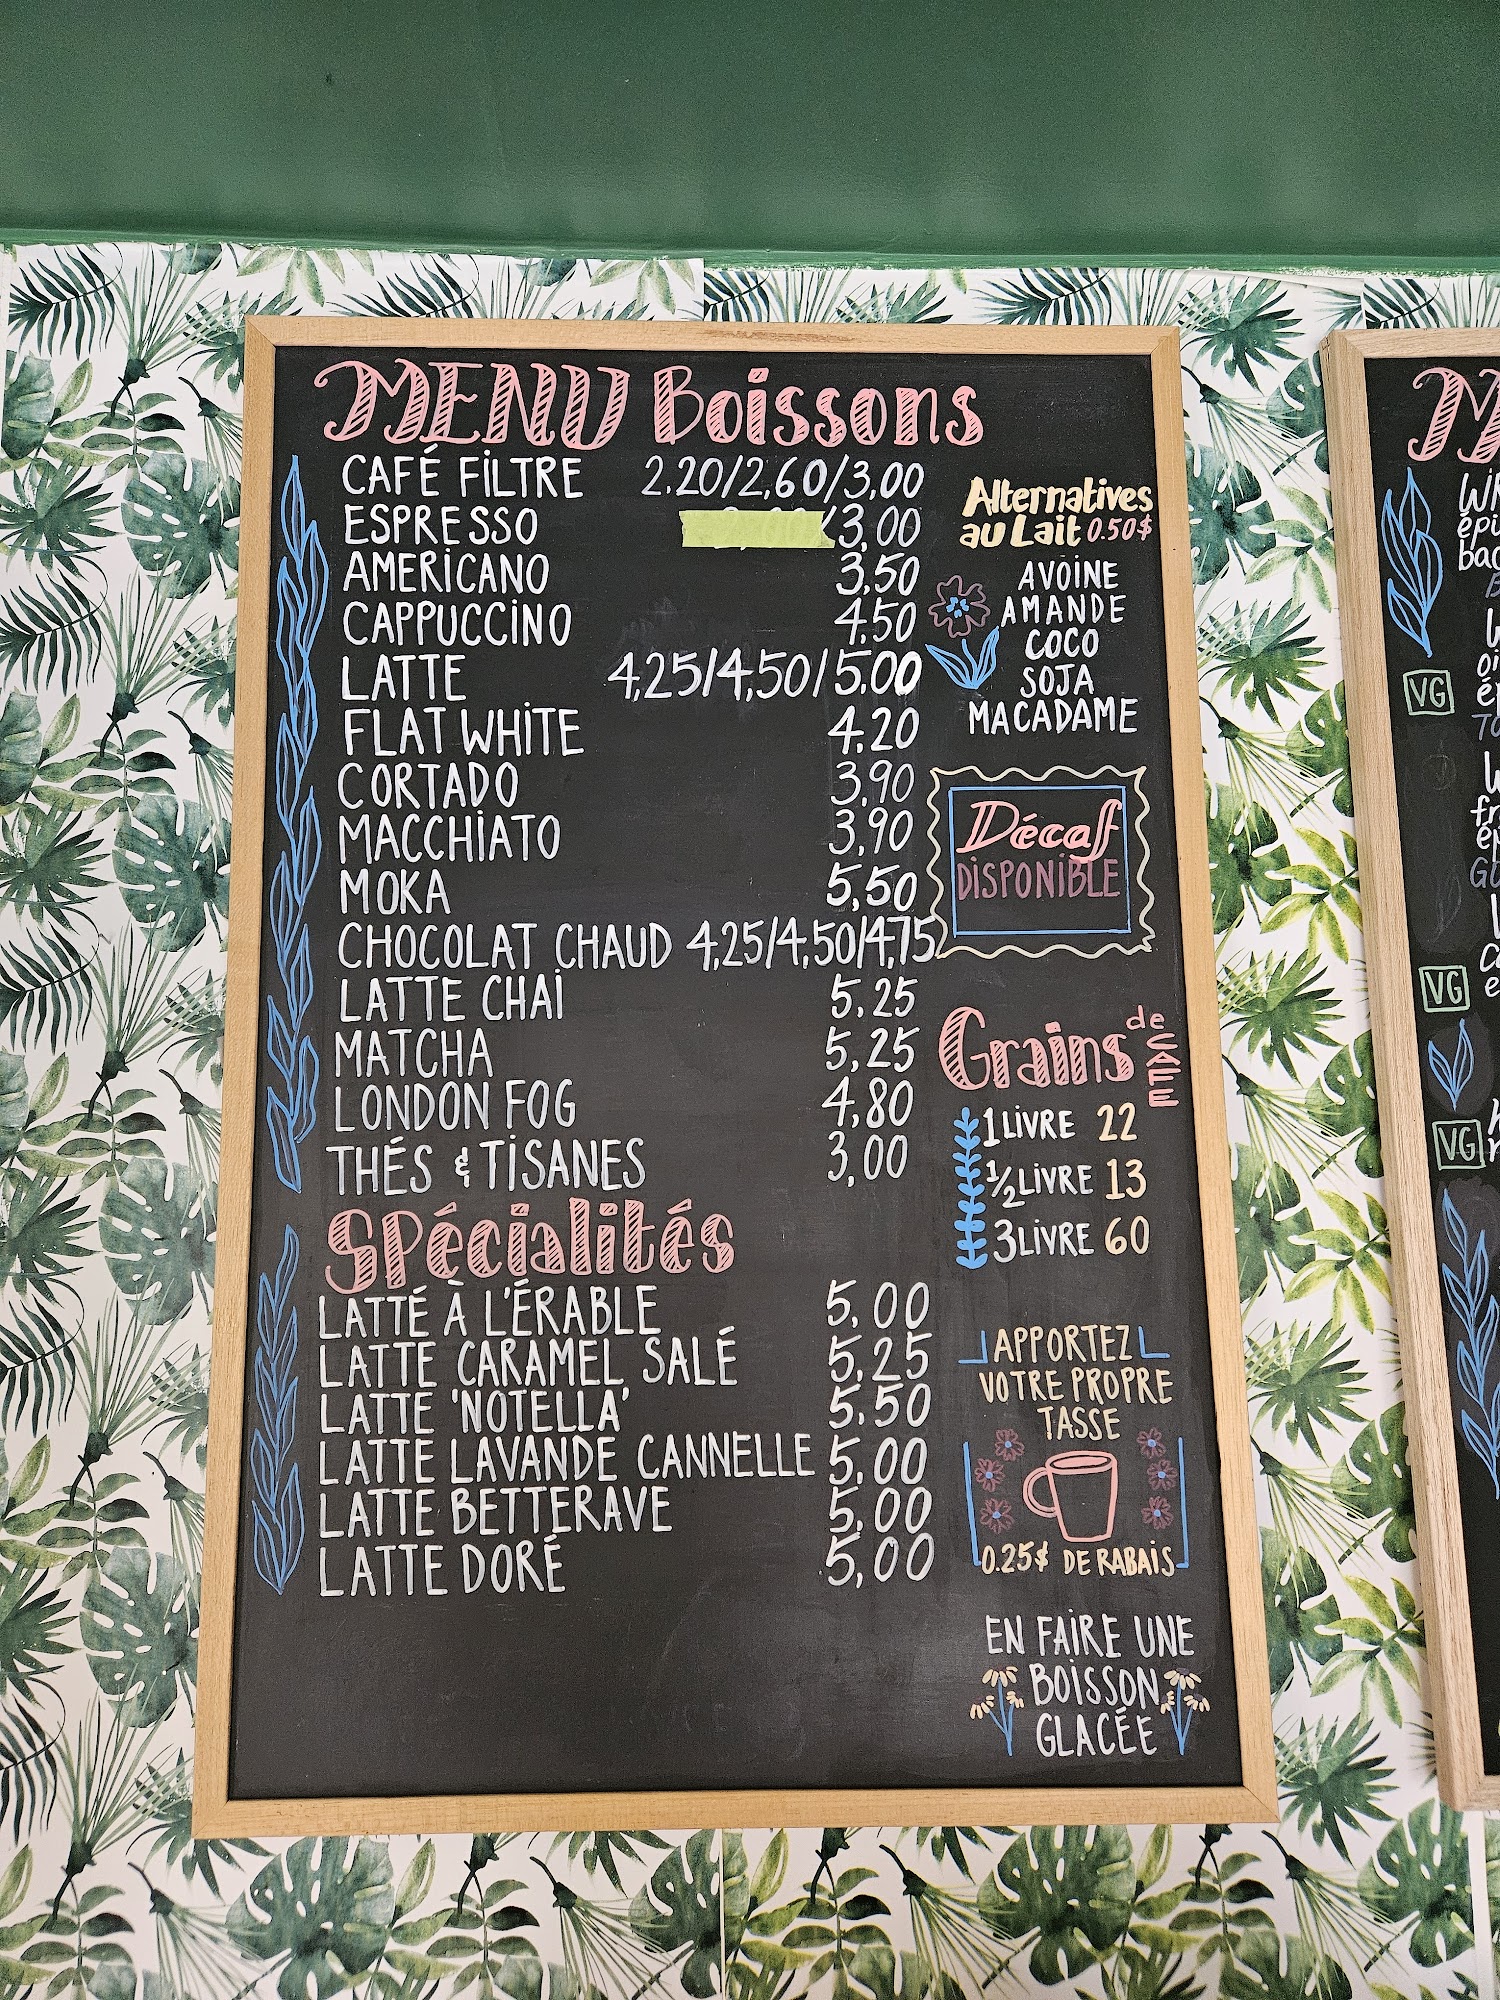 MENU Boissons
CAFÉ FILTRE 2.20/2,60/3,00
ESPRESSO /3,00
AMERICANO 3,50
CAPPUCCINO 4,50
LATTE 4,25/4,50/5.00
FLAT WHITE 4.20
CORTADO 3,90
MACCHIATO 3,90
MOKA 5,50
CHOCOLAT CHAUD 4,25/4,50/4,75
LATTE CHAI 5.25
MATCHA 5,25
LONDON FOG 4,80
THÉS & TISANES 3,00
Spécialités
LATTÉ À L'ÉRABLE 5,00
LATTE CARAMEL SALÉ 5.25
LATTE 'NOTELLA' 5.50
LATTE LAVANDE CANNELLE 5,00
LATTE BETTERAVE 5,00
LATTE DORÉ 5,00
Alternatives
au Lait 0.50$
AVOINE
AMANDE
COCO
SOJA
MACADAME
Décaf
DISPONIBLE
Grains de CAFE
1 LIVRE 22
1/2 LIVRE 13
3 LIVRE 60
APPORTEZ
VOTRE PROPRE
TASSE
0.25$ DE RABAIS
EN FAIRE UNE
BOISSON
GLACÉE
VG
VG
VG